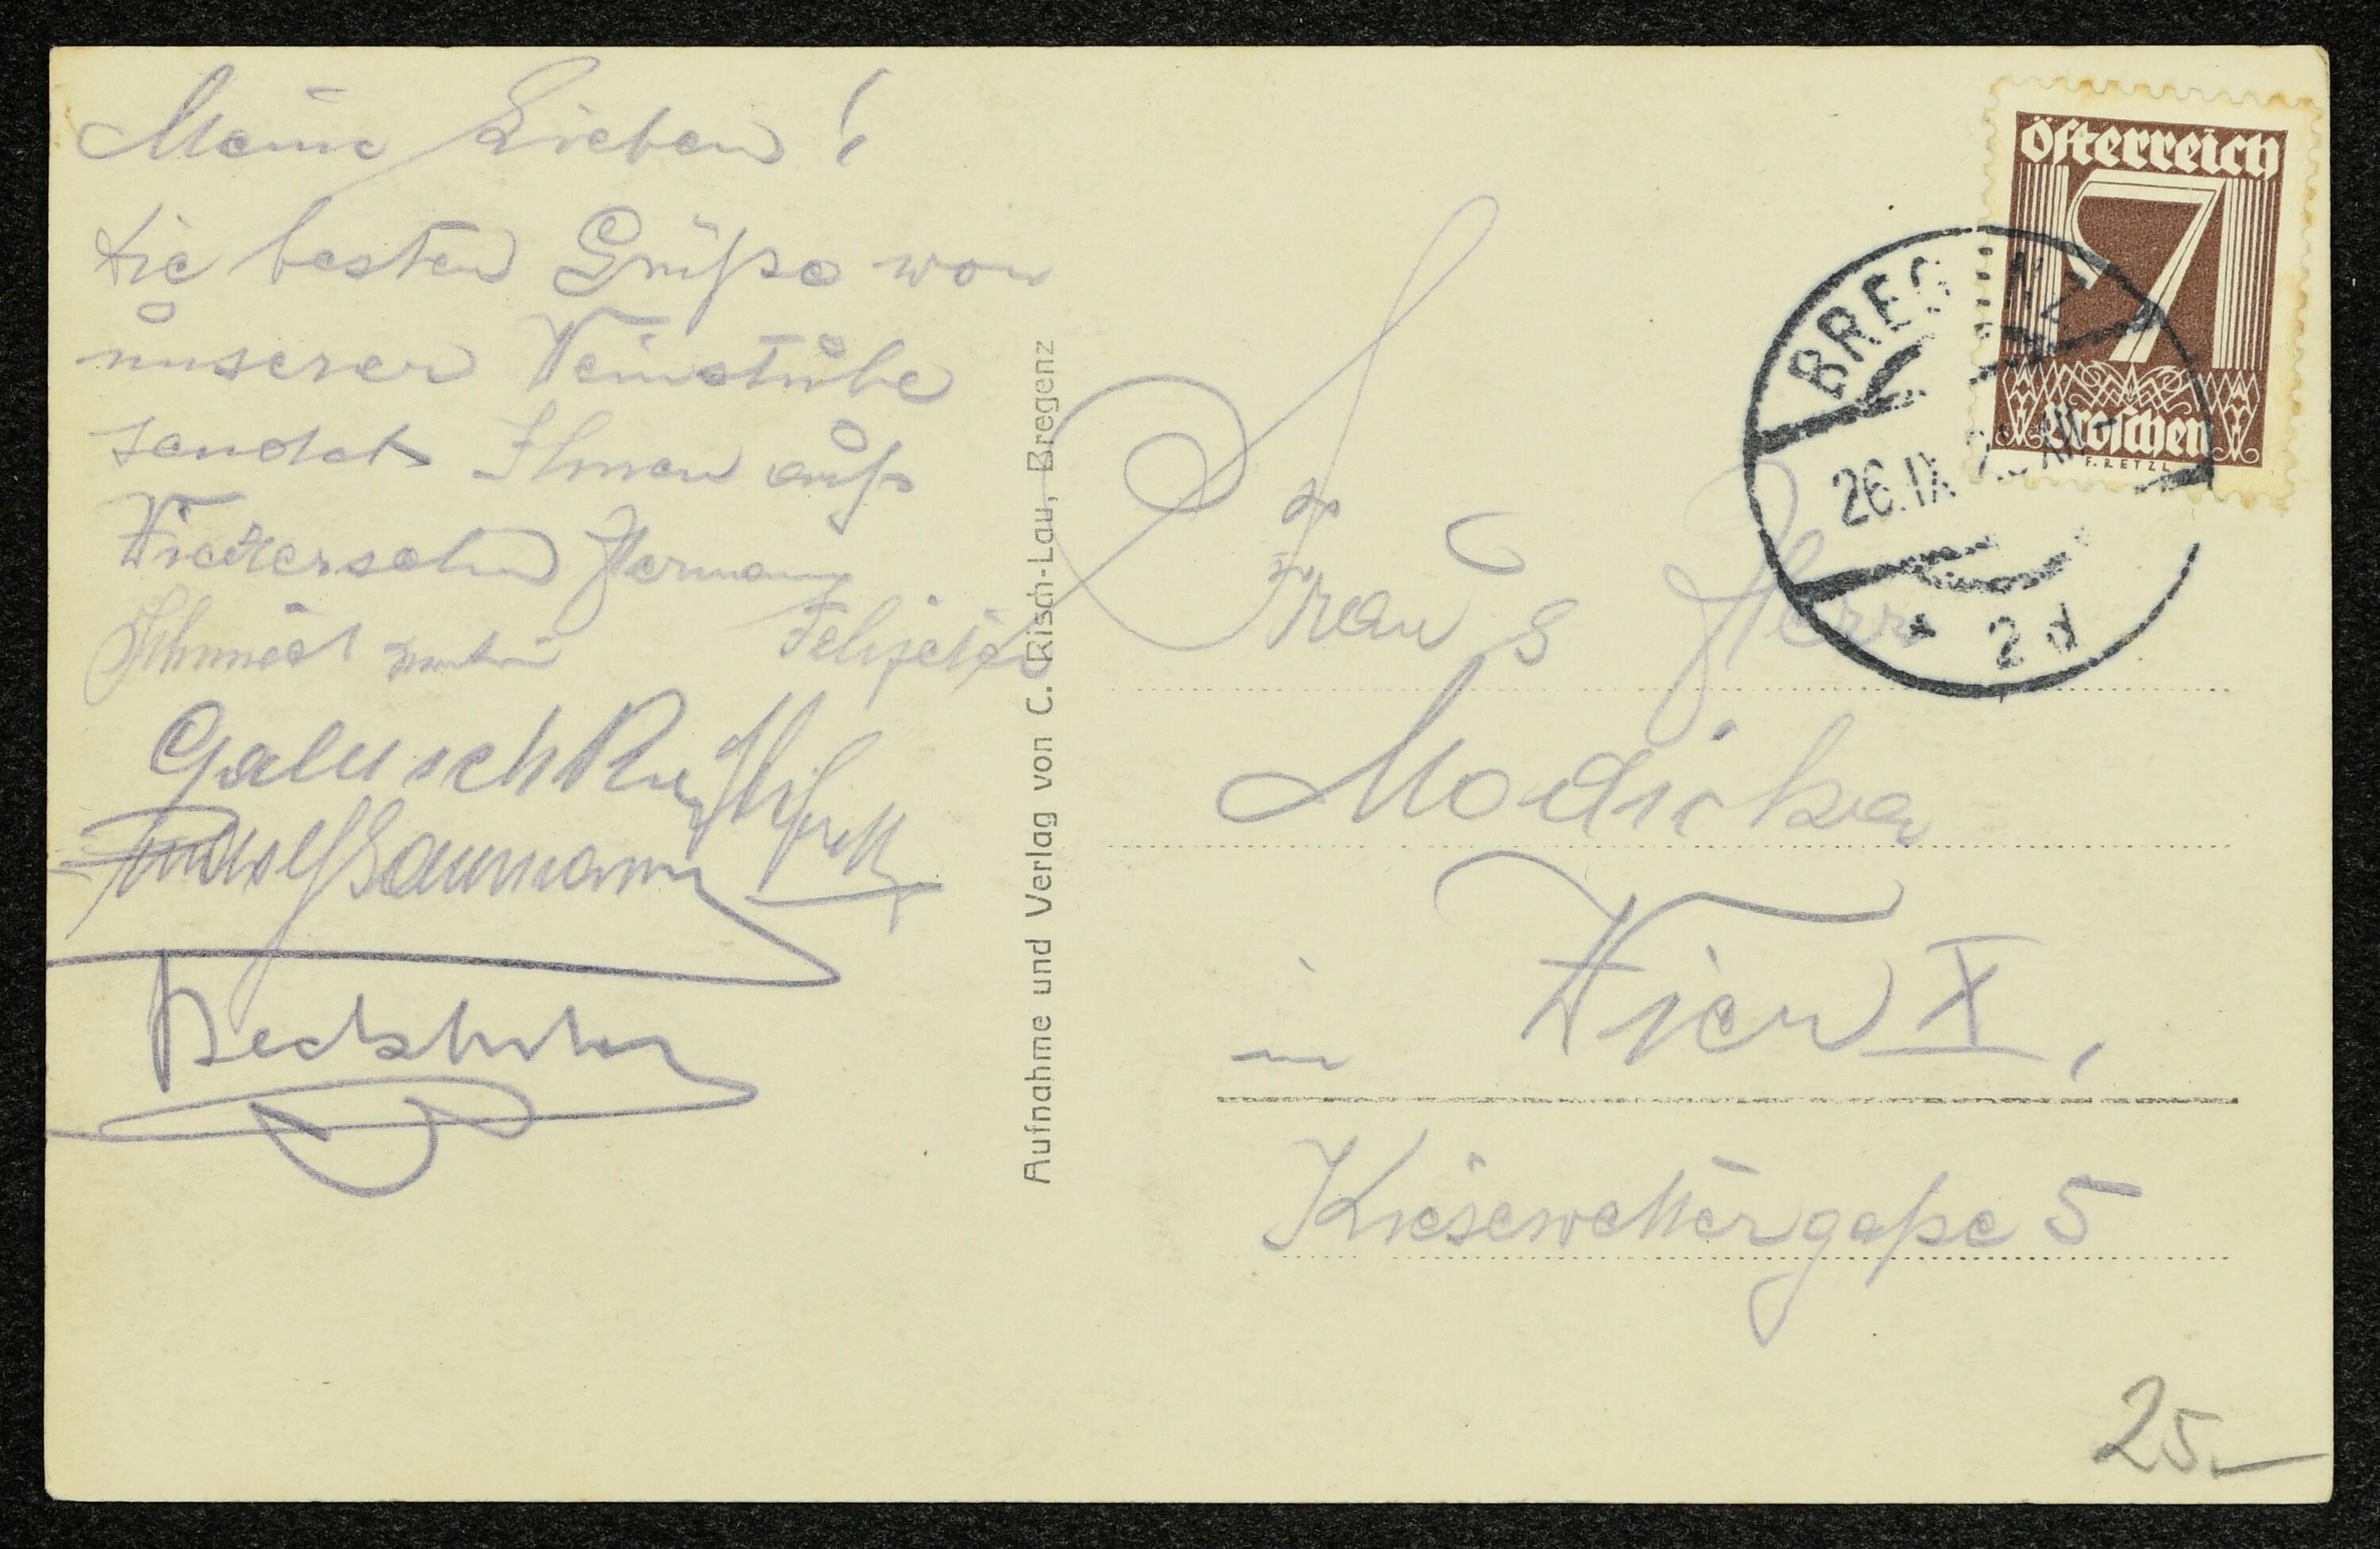 Meine Lieben!
die besten Grüße von
unserer Weinstube
sendet Ihnen auf
Wiedersehn Hermann
Schmidt
Galusch
Rudolf Baumann
Aufnahme und Verlag von C. Risch-Lau, Bregenz
österreich
7
Groschen
F. RETZL
BREGENZ
26.IX
* 2d
Frau & Herr
Modicka
in Wien X,
Kiesewettergaße 5
25.–